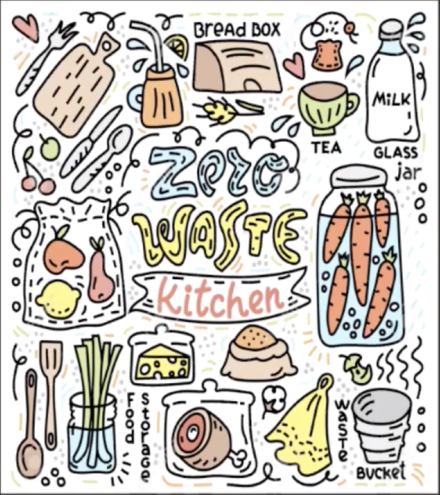 Bread box
MiLK
TEA
GLASS
jar
Zero
WASTE
Kitchen
Food
Storage
waste
Bucket